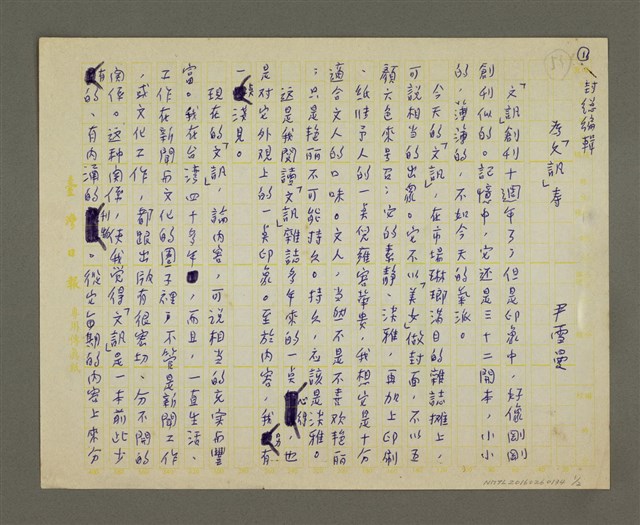 ①
封德編輯
為「文訊」壽
尹雪曼
「文訊」創刊十週年了；但是印象中，好像剛剛
創刊似的。記憶中，它还是三十二開本，小小
的，薄薄的，不如今天的氣派。
今天的「文訊」，在市場琳瑯满目的雜誌摊上，
可說相当的出衆。它不以「美女」做封面，不以五
顏六色來
它的素静、淡雅，再加上印刷
、紙張予人的一点儿雍容華貴，我想它是十分
適合文人的口味。文人，当然不是不喜欢艳丽
；只是艳丽不可能持久。持久，應該是淡雅。
这是我閱讀「文訊」雜誌多年來的一点心得，也
是对它外观上的一点印象。至於内容，我另有
一淺見。
現在的「文訊」，論内容，可說相当的充实而豐
富。我在台湾四十多年，而且，一直生活、
工作在新聞与文化的圈子裡；不管是新聞工作
，或文化工作，都跟出版有很密切、分不開的
関係。这种関係，使我觉得「文訊」是一本前此少
有的、有内涵的刊物。從它每期的内容上來分
臺灣日報
NMTL20160260134 1/2